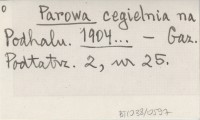 0
Parowa cegielnia na
Podhalu. 1904... — Gaz.
Podtatrz. 2, nr 25.